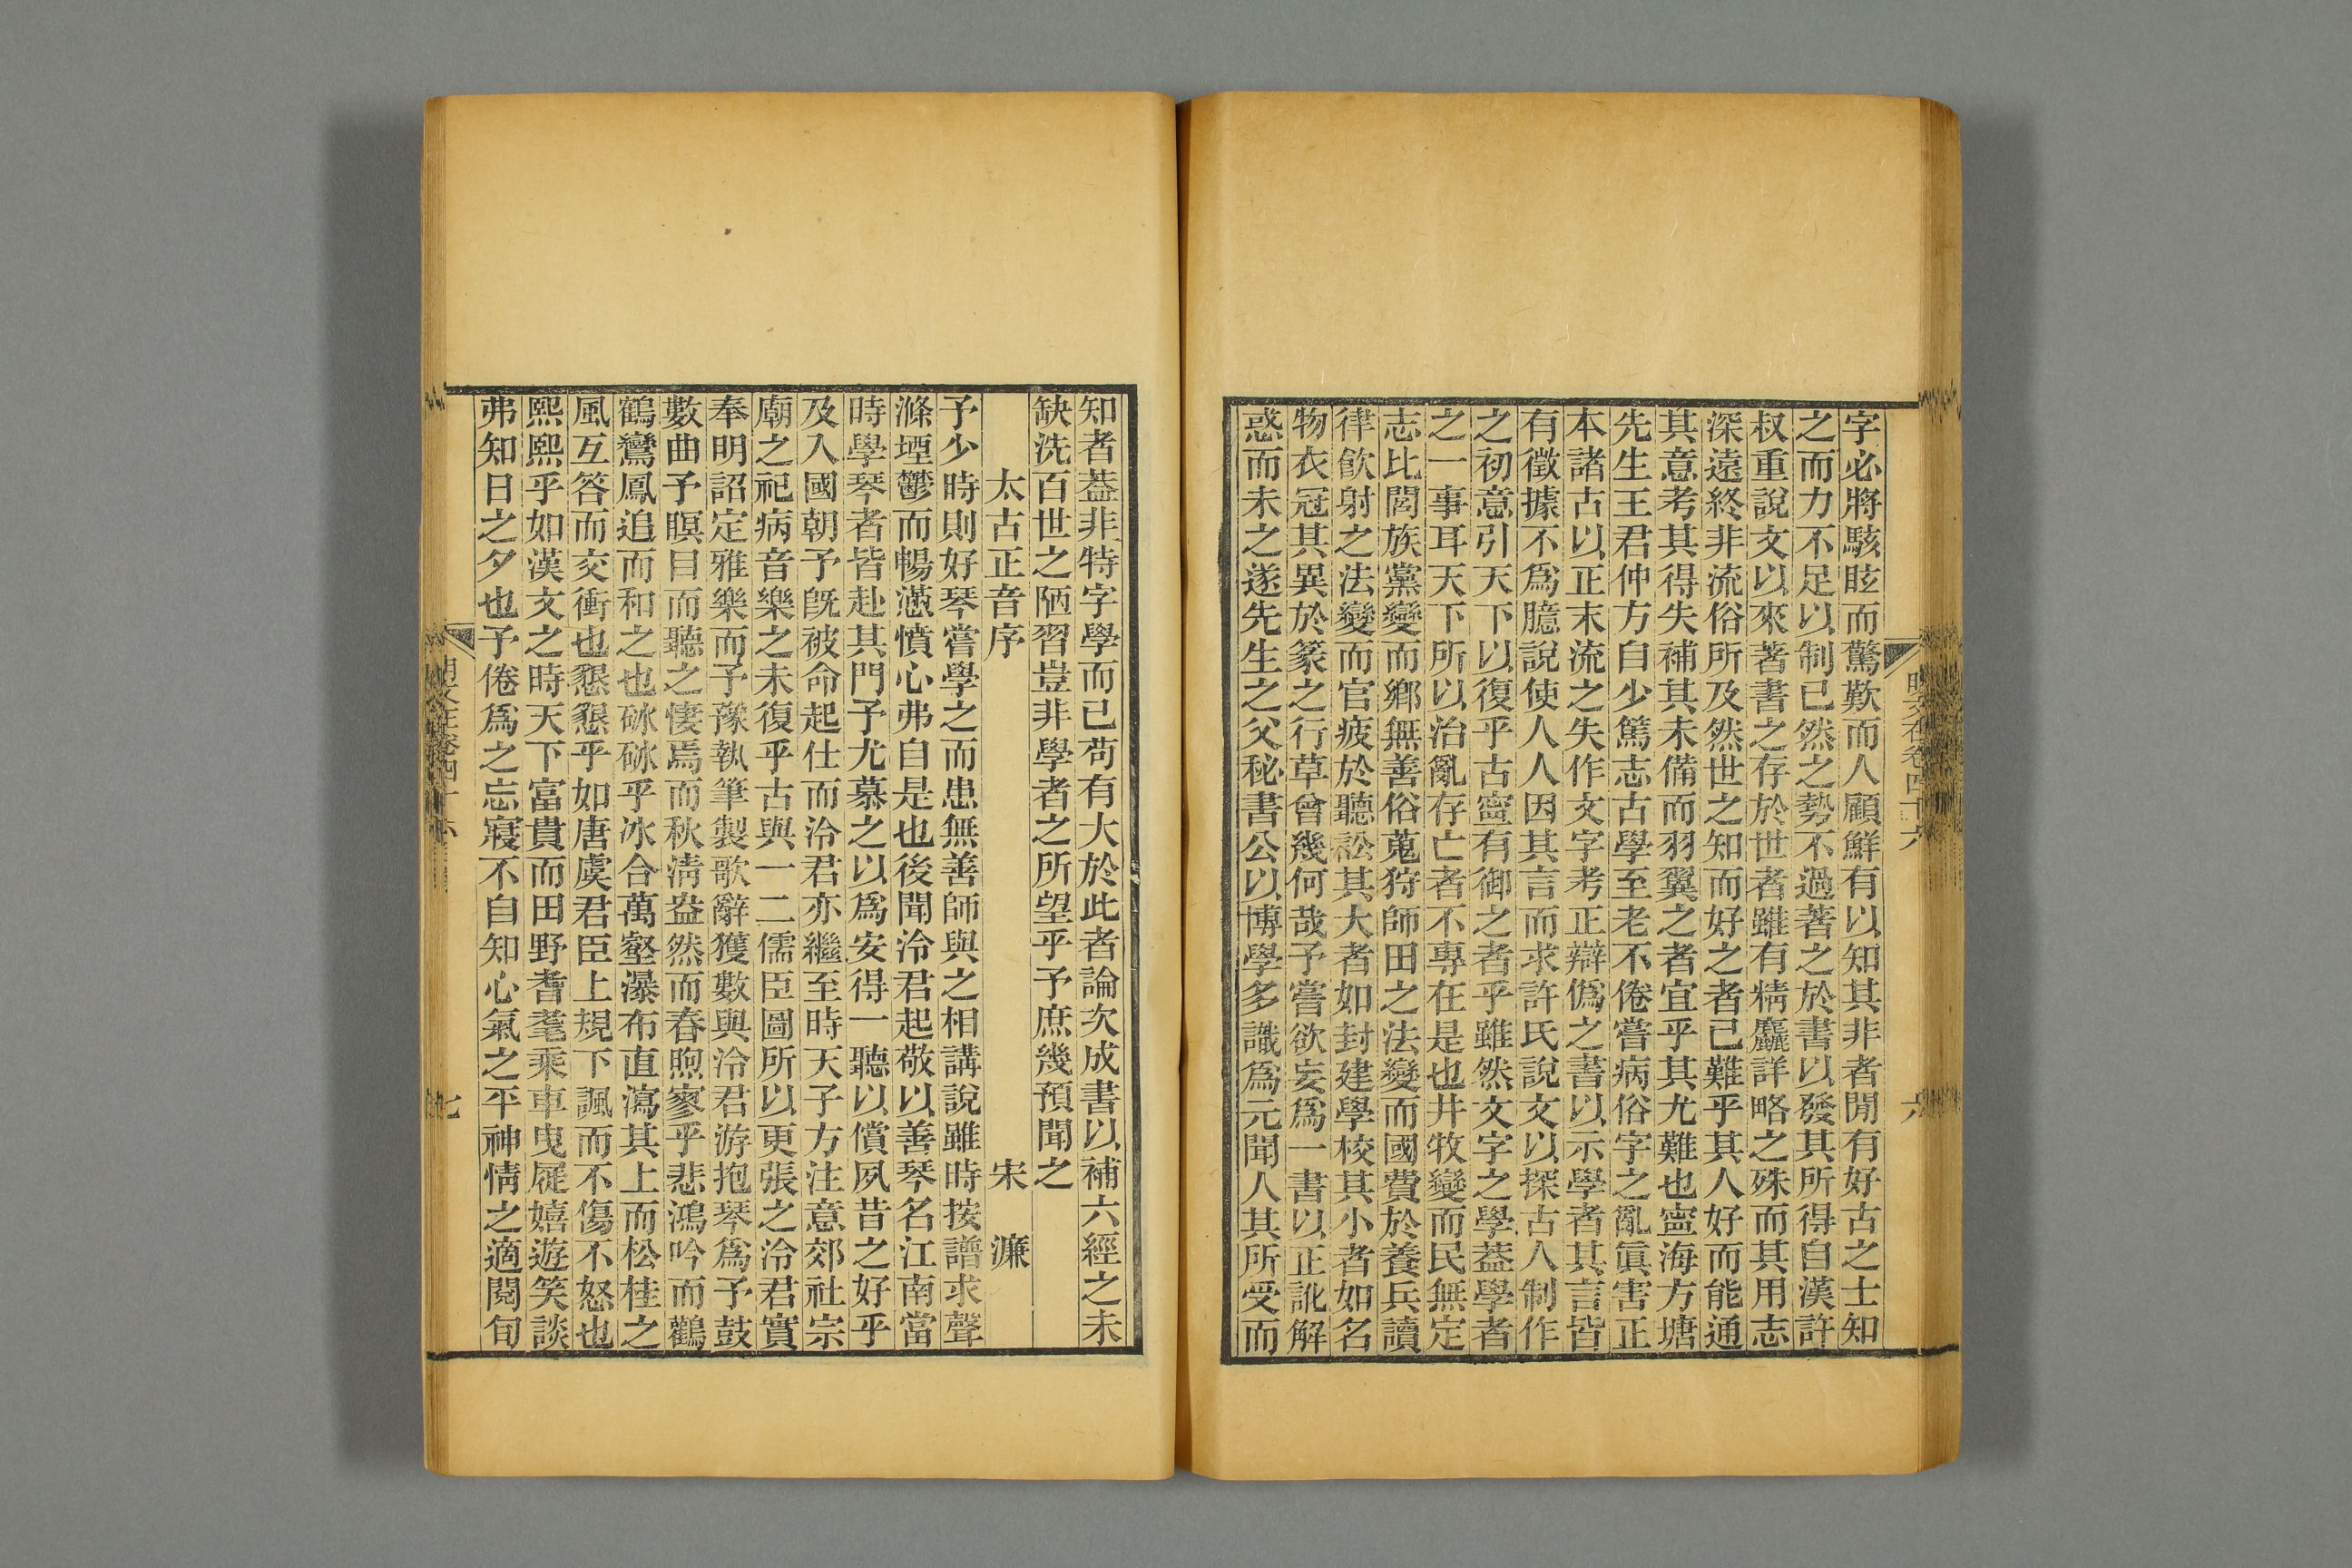 字必將駭眩而驚歎而人顧鮮有以知其非者閒有好古之士知
之而力不足以制已然之勢不過著之於書以發其所得自漢許
叔重說文以來著書之存於世者雖有精麤詳略之殊而其用志
深遠終非流俗所及然世之知而好之者已難乎其人好而能通
其意考其得失補其未備而羽翼之者宜乎其尤難也寧海方塘
先生王君仲方自少篤志古學至老不倦嘗病俗字之亂眞害正
本諸古以正末流之失作文字考正辯僞之書以示學者其言皆
有徵據不爲臆說使人人因其言而求許氏說文以探古人制作
之初意引天下以復乎古寧有御之者乎雖然文字之學葢學者
之一事耳天下所以治亂存亡者不專在是也井牧變而民無定
志比閭族黨變而鄉無善俗蒐狩師田之法變而國費於養兵讀
律飮射之法變而官疲於聽訟其大者如封建學校其小者如名
物衣冠其異於篆之行草曾幾何哉予嘗欲妄爲一書以正訛解
惑而未之遂先生之父秘書公以博學多識爲元聞人其所受而
明文在卷四十六
六
知者葢非特字學而已苟有大於此者論次成書以補六經之未
缺洗百世之陋習豈非學者之所望乎予庶幾預聞之
太古正音序 宋 濂
予少時則好琴嘗學之而患無善師與之相講說雖時按譜求聲
滌堙鬱而暢懣憤心弗自是也後聞泠君起敬以善琴名江南當
時學琴者皆赴其門予尤慕之以爲安得一聽以償夙昔之好乎
及入國朝予旣被命起仕而泠君亦繼至時天子方注意郊社宗
廟之祀病音樂之未復乎古與一二儒臣圖所以更張之泠君實
奉明詔定雅樂而予豫執筆製歌辭獲數與泠君游抱琴爲予鼓
數曲予瞑目而聽之悽焉而秋淸盎然而春煦寥乎悲鴻吟而鸛
鶴鸞鳳追而和之也砯砯乎冰合萬壑瀑布直瀉其上而松桂之
風互答而交衝也懇懇乎如唐虞君臣上規下諷而不傷不怒也
熙熙乎如漢文之時天下富貴而田野耆耄乘車曳屣嬉遊笑談
弗知日之夕也予倦爲之忘寢不自知心氣之平神情之適閱旬
明文在卷四十六
七